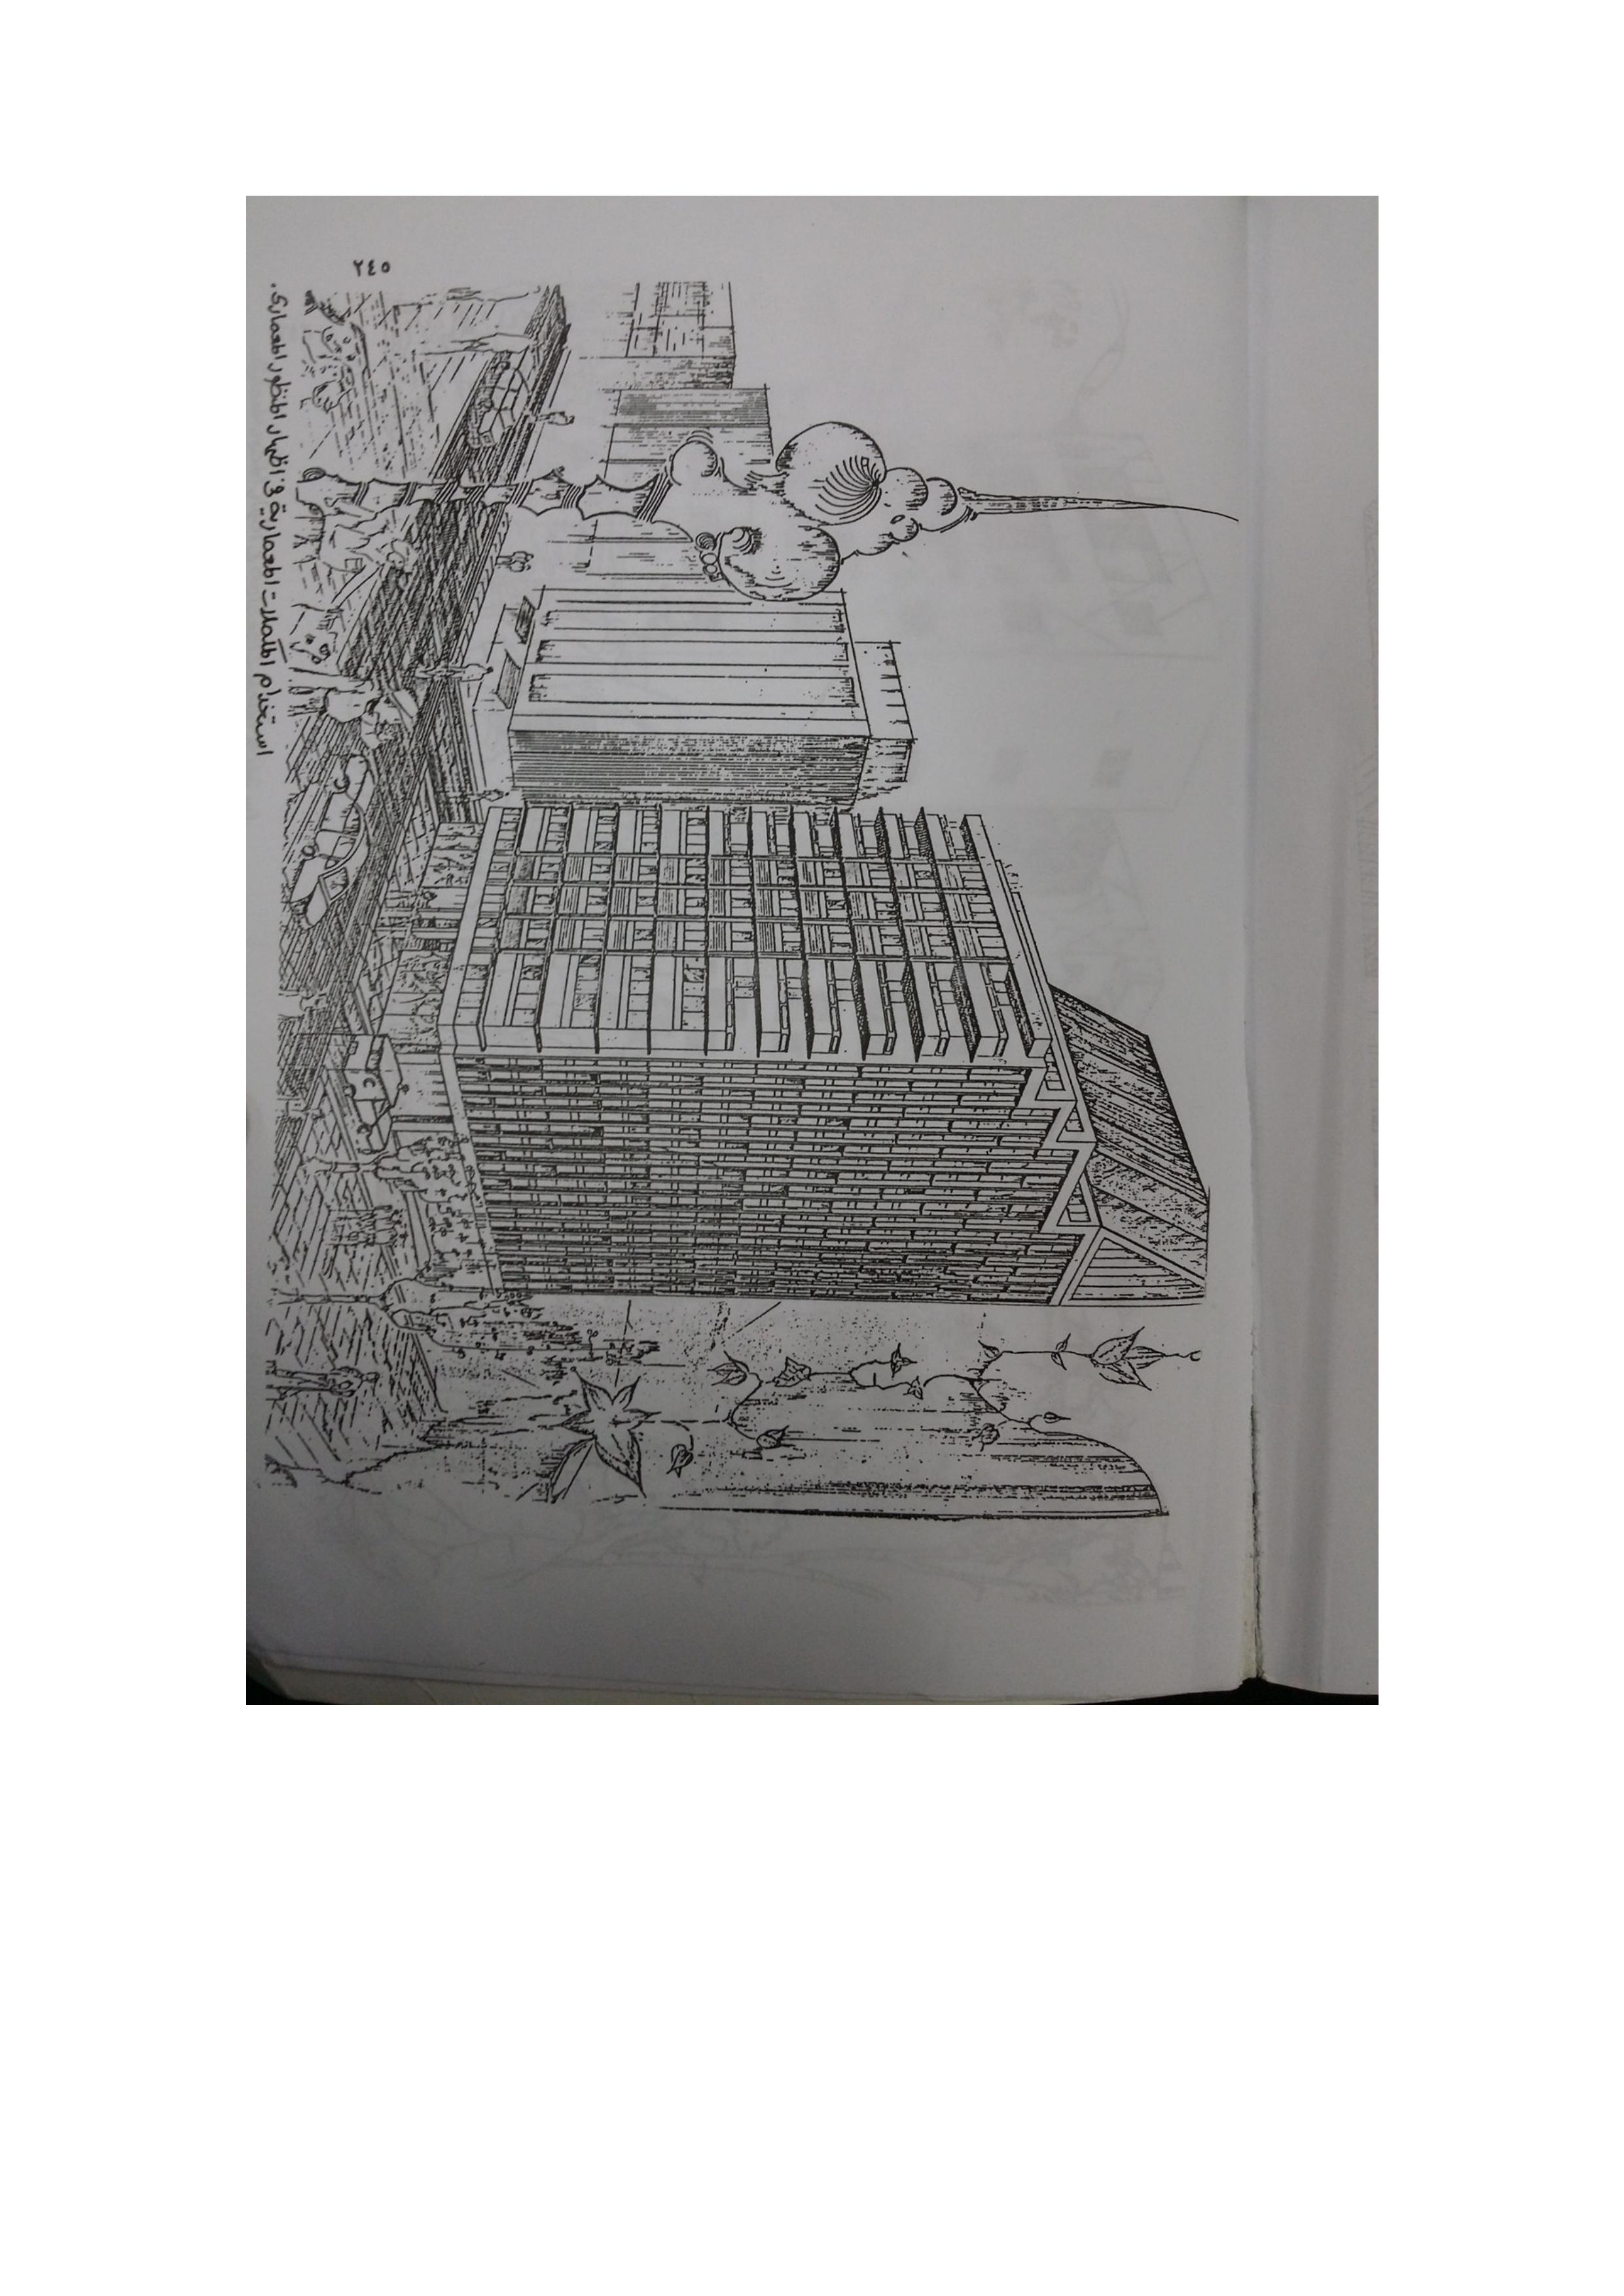 استخدام المكملات المعمارية في اظهار المنظور المعماري.
٢٤٥